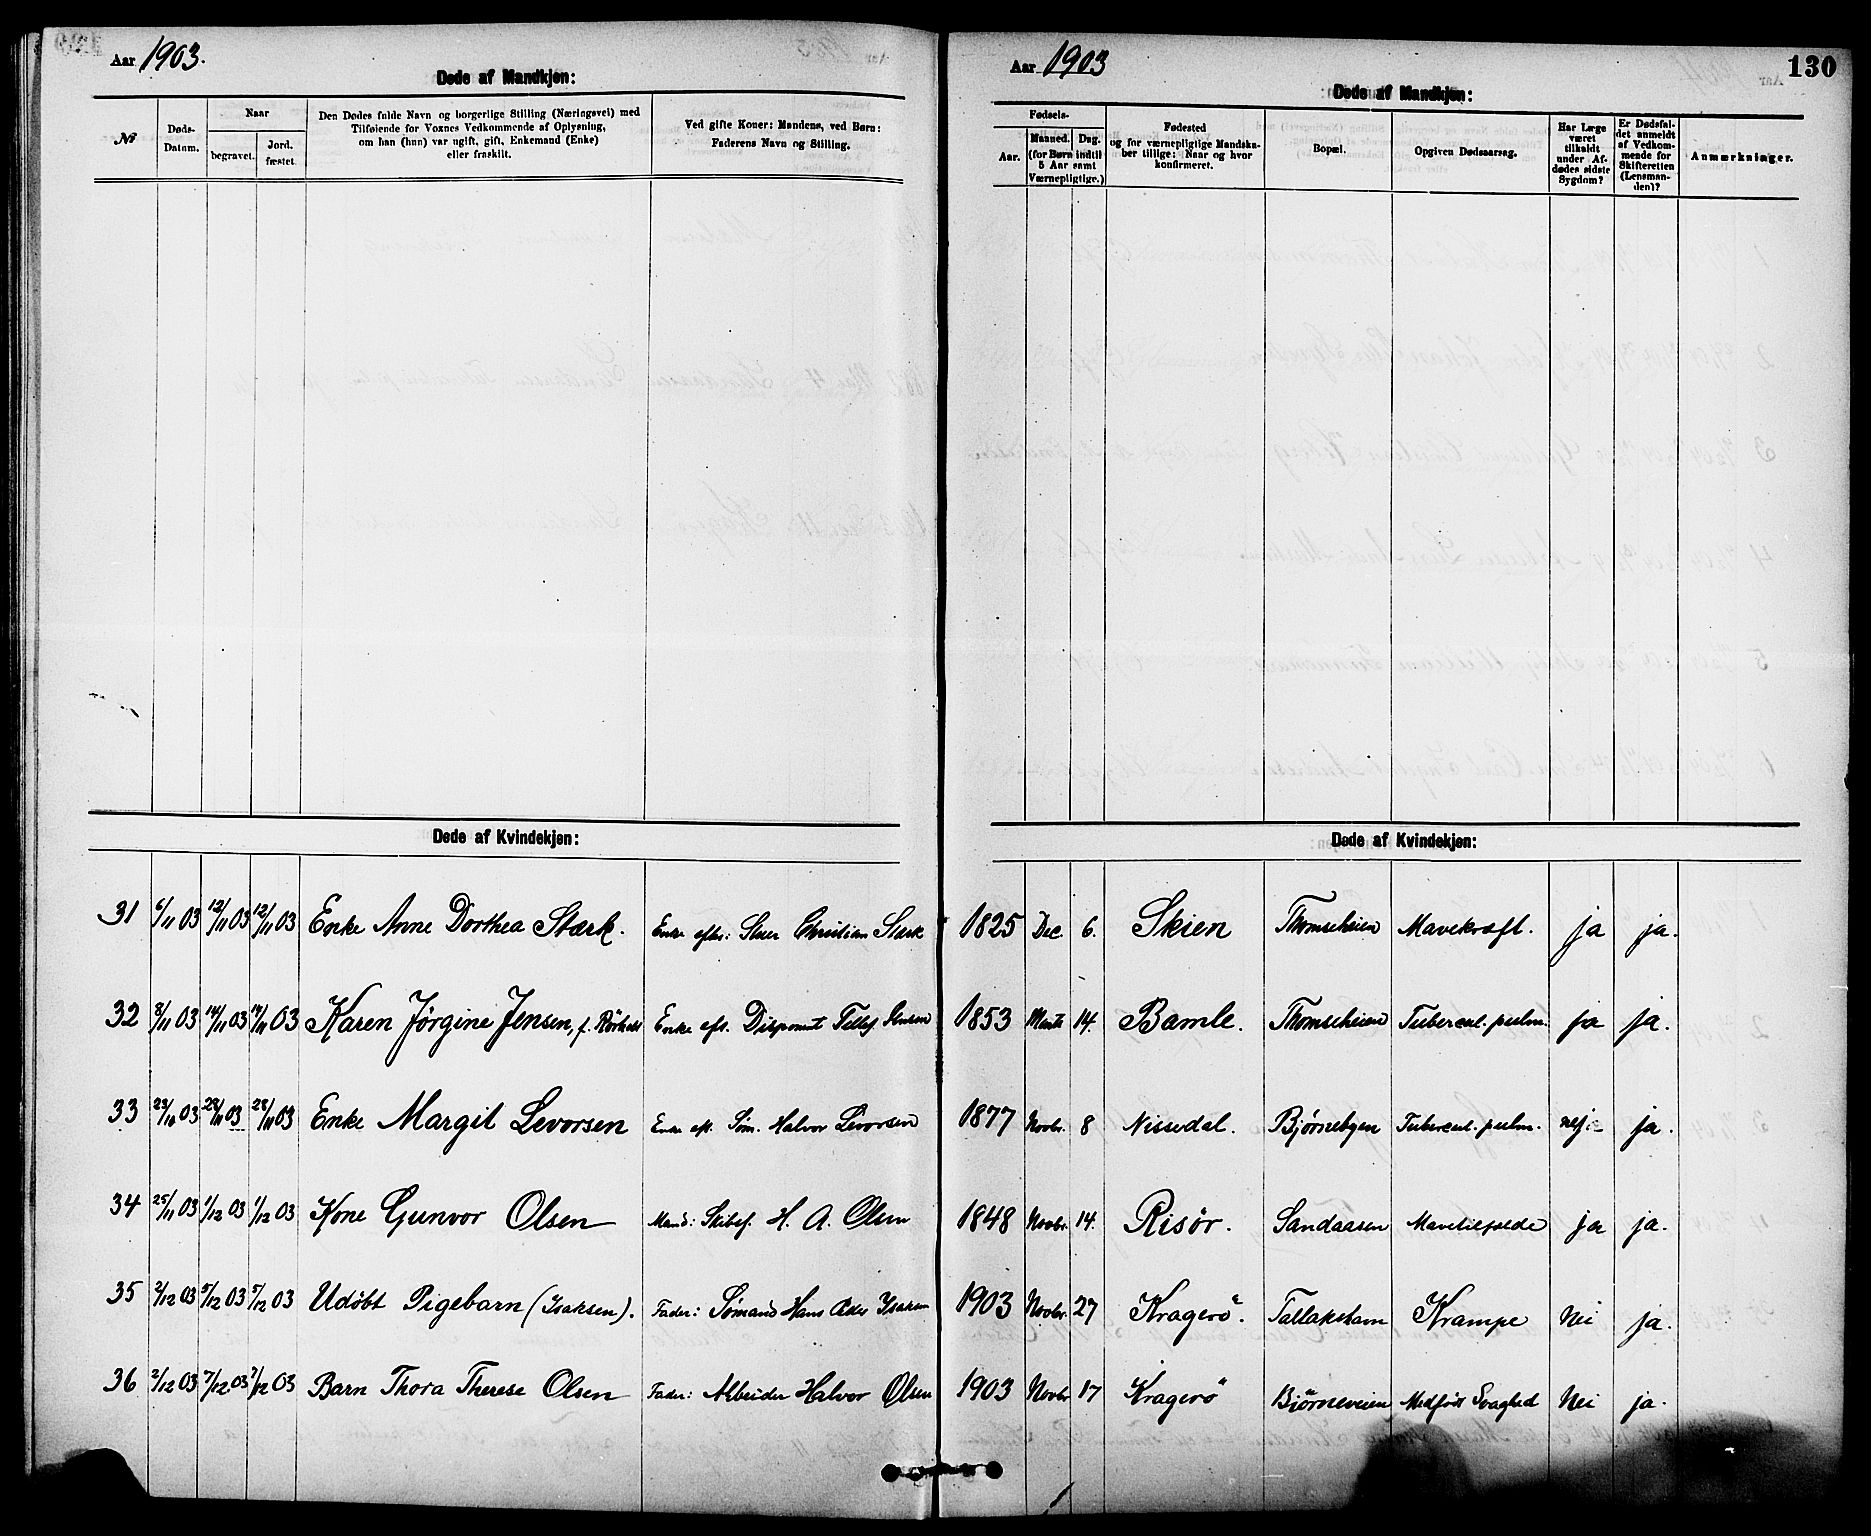 Aar 1903.
Døde af Mandkjøn:
№
Døds-
Datum.
Naar
begravet.
Jord-
fæstet.
Den Dødes fulde Navn og borgerlige Stilling (Næringsvei) med
Tilføiende for Voxnes Vedkommende af Oplysning,
om han (hun) var ugift, gift, Enkemand (Enke)
eller fraskilt.
Ved gifte Koner: Mandens, ved Børn:
Faderens Navn og Stilling.
Døde af Kvindekjøn:
31 6/11 03 12/11 03 12/11 03 Enke Anne Dorthea Stærk. Enke efter: Christian Stærk
32 8/11 03 14/11 03 14/11 03 Karen Jørgine Jensen, f. Enke eft. Disponent Tellef Jensen
33 03 28/11 03 28/11 03 Enke Margit Levorsen Enke eft. Søm. Halvor Levorsen
34 25/11 03 1/12 03 1/12 03 Kone Gunvor Olsen Mand: Skibsf. H. A. Olsen
35 2/12 03 5/12 03 5/12 03 Udöbt Pigebarn (Isaksen). Fader: Sømand Hans Isaksen
36 2/12 03 7/12 03 7/12 03 Barn Thora Therese Olsen Fader: Arbeider Halvor Olsen
Aar 1903
130
Døde af Mandkjøn:
Fødsels-
Aar.
Maaned. Dag.
(for Børn indtil
5 Aar samt
Værnepligtige.)
Fødested
og for værnepligtige Mandska-
ber tillige: Naar og hvor
konfirmeret.
Bopæl.
Opgiven Dødsaarsag.
Har Læge
været
tilkaldt
under Af-
dødes sidste
Sygdom?
Er Dødsfal-
det anmeldt
af Vedkom-
mende for
Skifteretten
(Lensman-
den)?
Anmærkninger.
Døde af Kvindekjøn:
1825 Dec. 6. Skien Thomseheien Mavekræft. ja ja.
1853 Marts 14. Bamle. Thomseheien Tubercul. pulm. ja ja.
1877 Novbr. 8 Nissedal. Bjørnebyen Tubercul. pulm. nej ja.
1848 Novbr. 14. Risör. Sandaasen Mavetilfælde ja ja.
1903 Novbr. 27 Kragerö. Tallakshavn Krampe Nei ja.
1903 Novbr 17 Kragerö Biörneveien Medfödt Svaghed Nei ja.